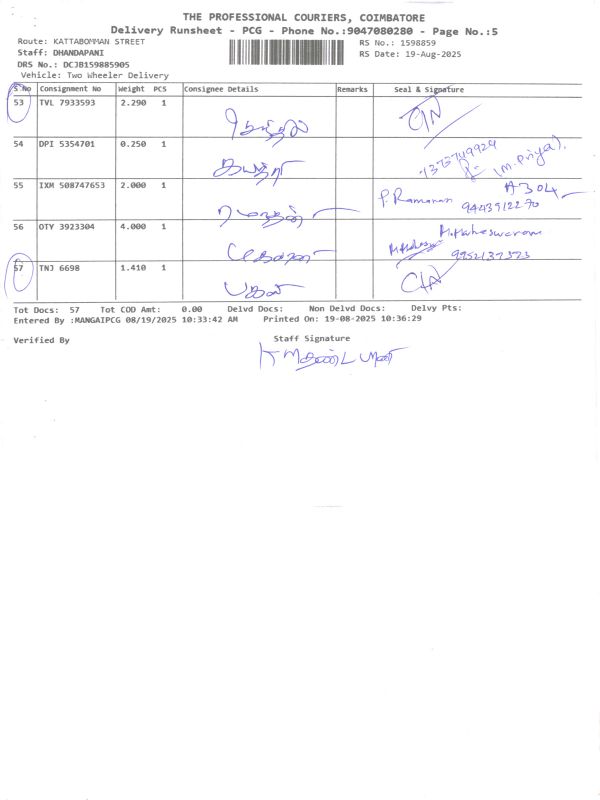 THE PROFESSIONAL COURIERS, COIMBATORE
Delivery Runsheet - PCG - Phone No.:9047080280 - Page No.:5
Route: KATTABOMMAN STREET RS No.: 1598859
Staff: DHANDAPANI RS Date: 19-Aug-2025
DRS No.: DCJB159885905
Vehicle: Two Wheeler Delivery
S No Consignment No Weight PCS Consignee Details Remarks Seal & Signature
53 TVL 7933593 2.290 1
54 DPI 5354701 0.250 1 (M. Priya).
55 IXM 508747653 2.000 1 P. Ramanan A304
9443912270
56 OTY 3923304 4.000 1 M. Maheswaran
9952137373
57 TNJ 6698 1.410 1
Tot Docs: 57 Tot COD Amt: 0.00 Delvd Docs: Non Delvd Docs: Delvy Pts:
Entered By :MANGAIPCG 08/19/2025 10:33:42 AM Printed On: 19-08-2025 10:36:29
Verified By Staff Signature